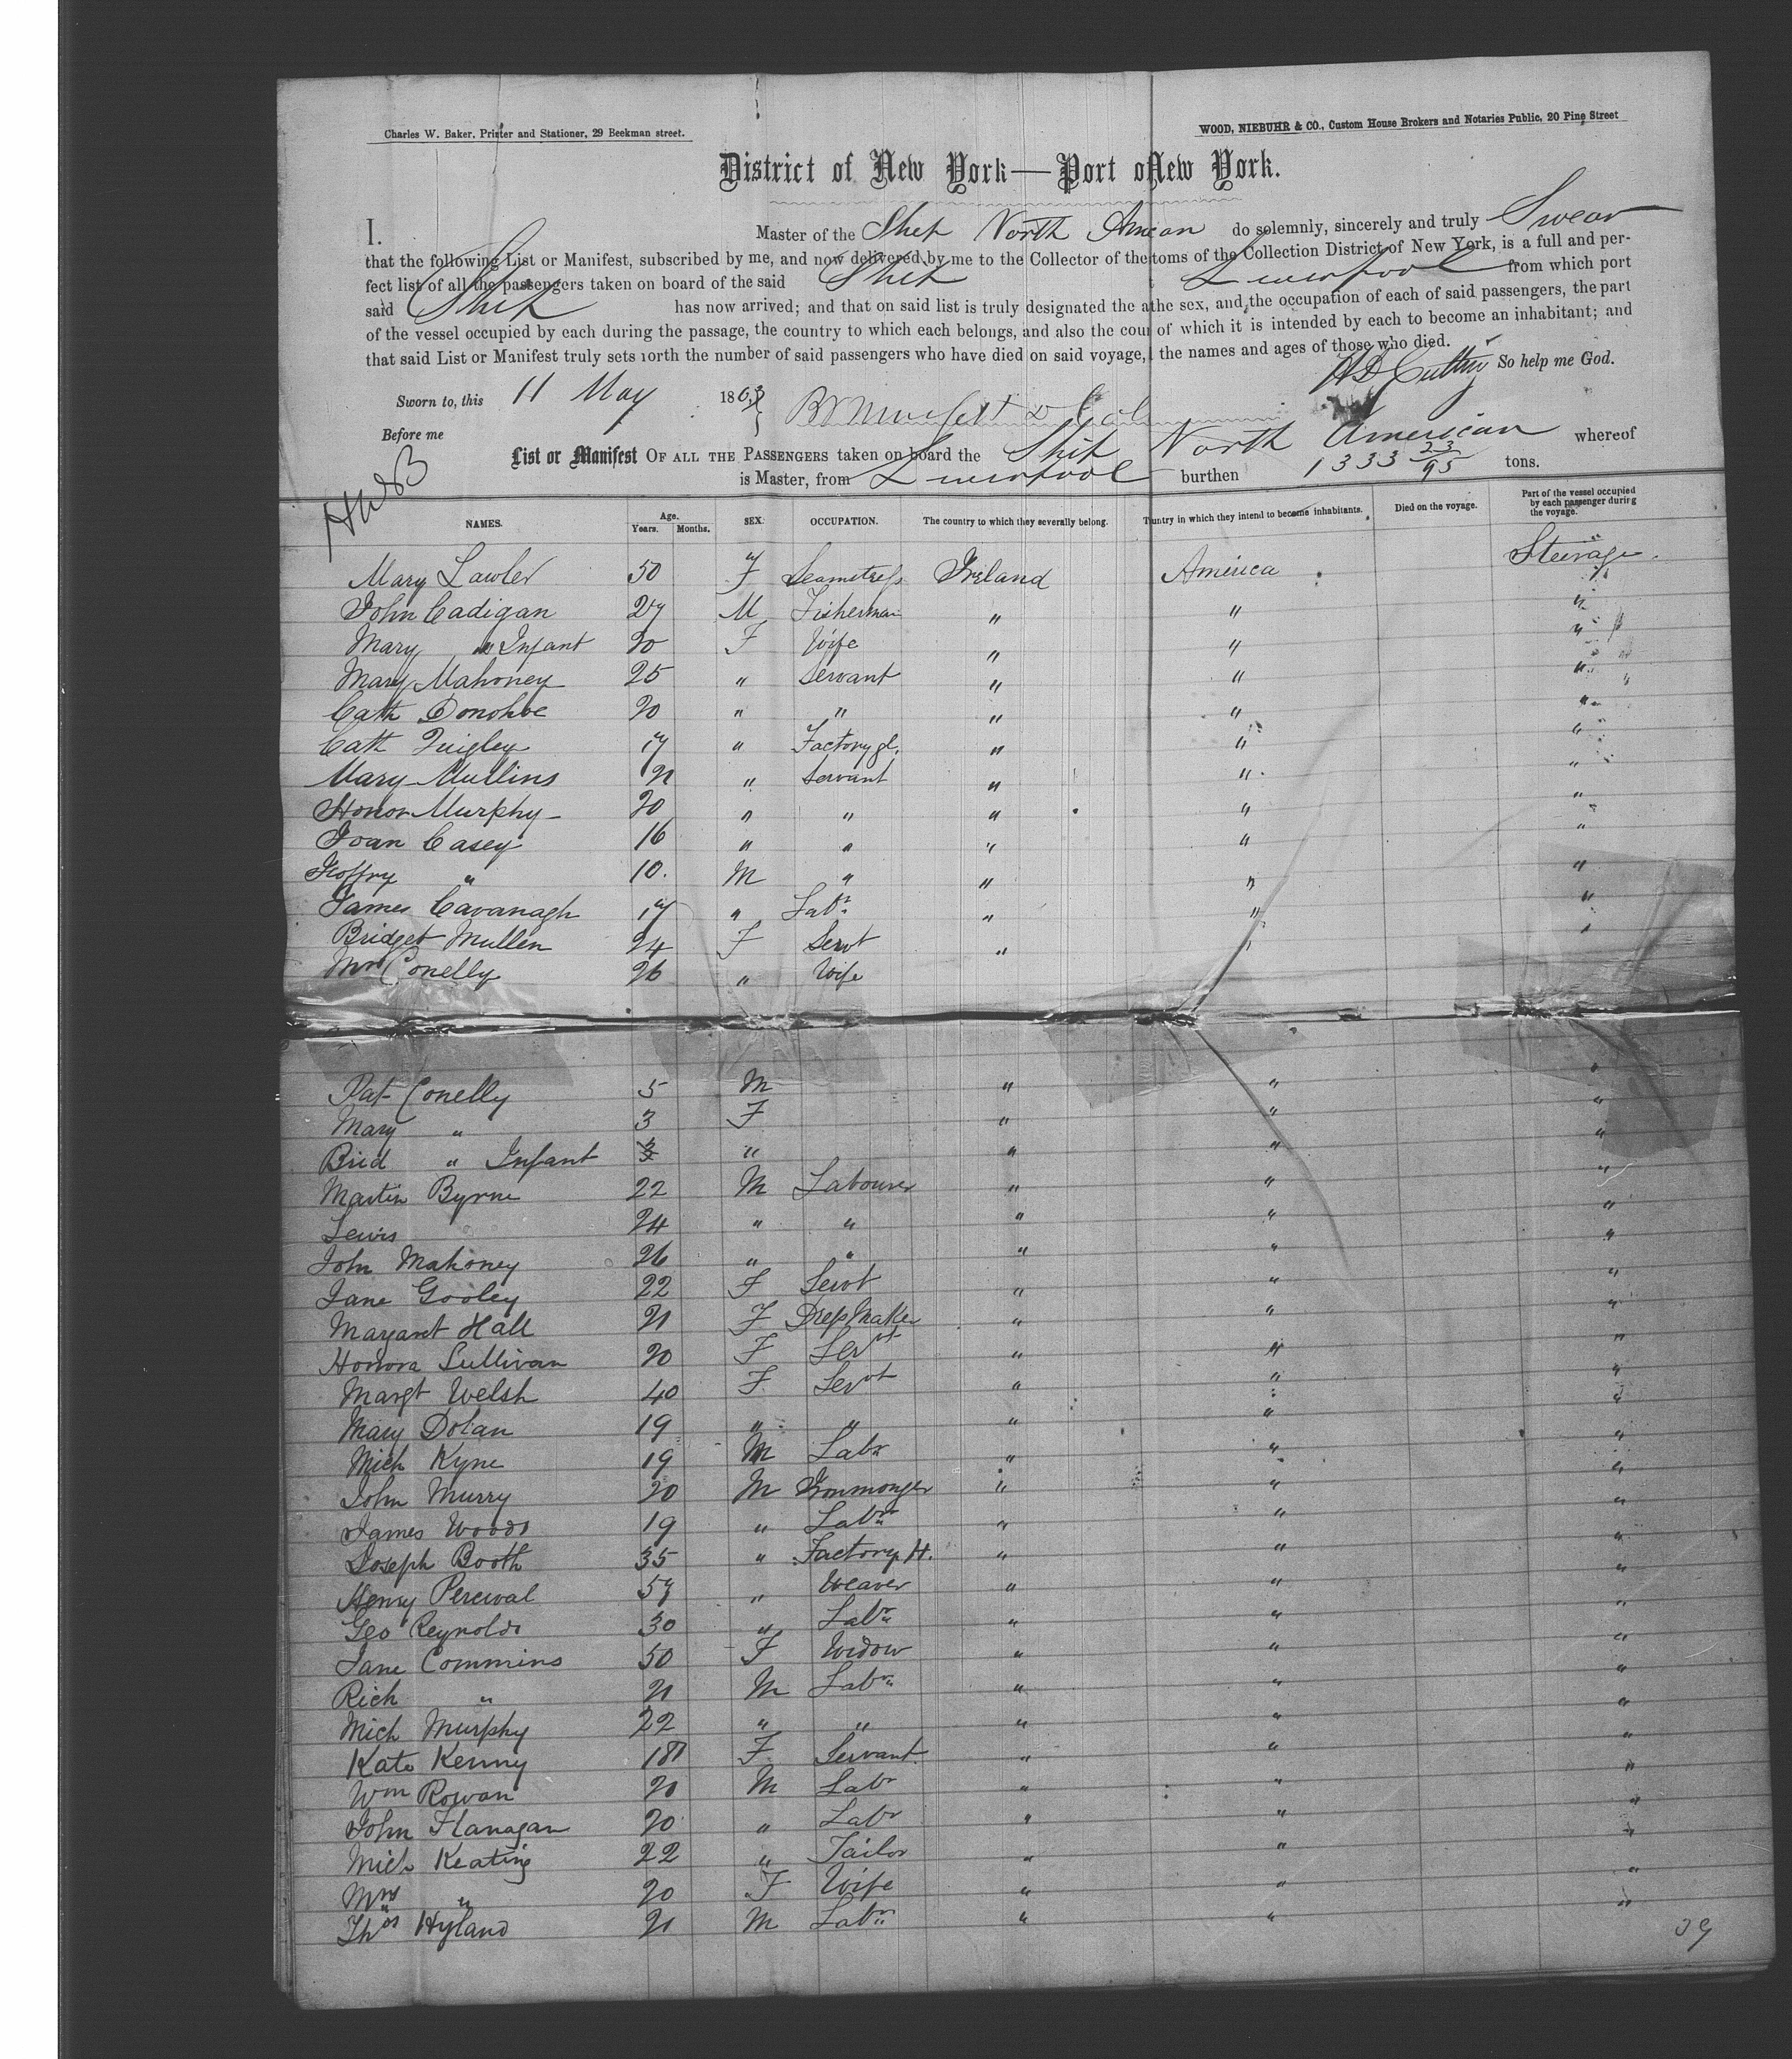 Charles W. Baker, Printer and Stationer, 29 Beekman street.
WOOD, NIEBUHR & CO., Custom House Brokers and Notaries Public, 20 Pine Street
District of New York—Port of New York.
I. Master of the Ship North American do solemnly, sincerely and truly Swear
that the following List or Manifest, subscribed by me, and now delivered by me to the Collector of the toms of the Collection District of New York, is a full and per-
fect list of all the passengers taken on board of the said Ship Liverpool from which port
said Ship has now arrived; and that on said list is truly designated the a the sex, and the occupation of each of said passengers, the part
of the vessel occupied by each during the passage, the country to which each belongs, and also the cou of which it is intended by each to become an inhabitant; and
that said List or Manifest truly sets forth the number of said passengers who have died on said voyage, the names and ages of those who died.
So help me God.
Sworn to, this 11 May 1863
Before me
HWB
List or Manifest OF ALL THE PASSENGERS taken on board the Ship North American whereof
is Master, from Liverpool burthen 1333 23/95 tons.
NAMES. Age. Years. Months. SEX. OCCUPATION. The country to which they severally belong. untry in which they intend to become inhabitants. Died on the voyage. Part of the vessel occupied by each passenger during the voyage.
Mary Lawler 50 F Seamstress Ireland America Steerage
John Cadigan 27 M Fisherman " " "
Mary " Infant 20 F Wife " " "
Mary Mahoney 25 " Servant " " "
Cath Donohoe 20 " " " " "
Cath Quigley 17 " Factory gl. " " "
Mary Mullins 21 " Servant " " "
Honor Murphy 20 " " " " "
Joan Casey 16 " " " " "
Joffry " 10 M " " " "
James Cavanagh 17 " Labr " " "
Bridget Mullen 24 F Servt " " "
Mrs Conelly 26 " Wife
Pat Conelly 5 M " " "
Mary " 3 F " " "
Brid " Infant " " " "
Martin Byrne 22 M Labourer " " "
Lewis 24 " " " " "
John Mahoney 26 " " " " "
Jane Gooley 22 F Servt " " "
Margaret Hall 21 F Dress Maker " " "
Honora Sullivan 20 F Servt " " "
Margt Welsh 40 F Servt " " "
Mary Dolan 19 " " " " "
Mich Kyne 19 M Labr " " "
John Murry 20 M Ironmonger " " "
James Woods 19 " Labr " " "
Joseph Booth 35 " Factory H. " " "
Henry Percival 57 " Weaver " " "
Geo Reynolds 30 " Labr " " "
Jane Commins 50 F Widow " " "
Rich " 21 M Labr " " "
Mich Murphy 22 " " " " "
Kate Kenny 18 F Servant " " "
Wm Rowan 20 M Labr " " "
John Flanagan 20 " Labr " " "
Mich Keating 22 " Tailor " " "
Mrs " 20 F Wife " " "
Thos Hyland 21 M Labr " " "
39